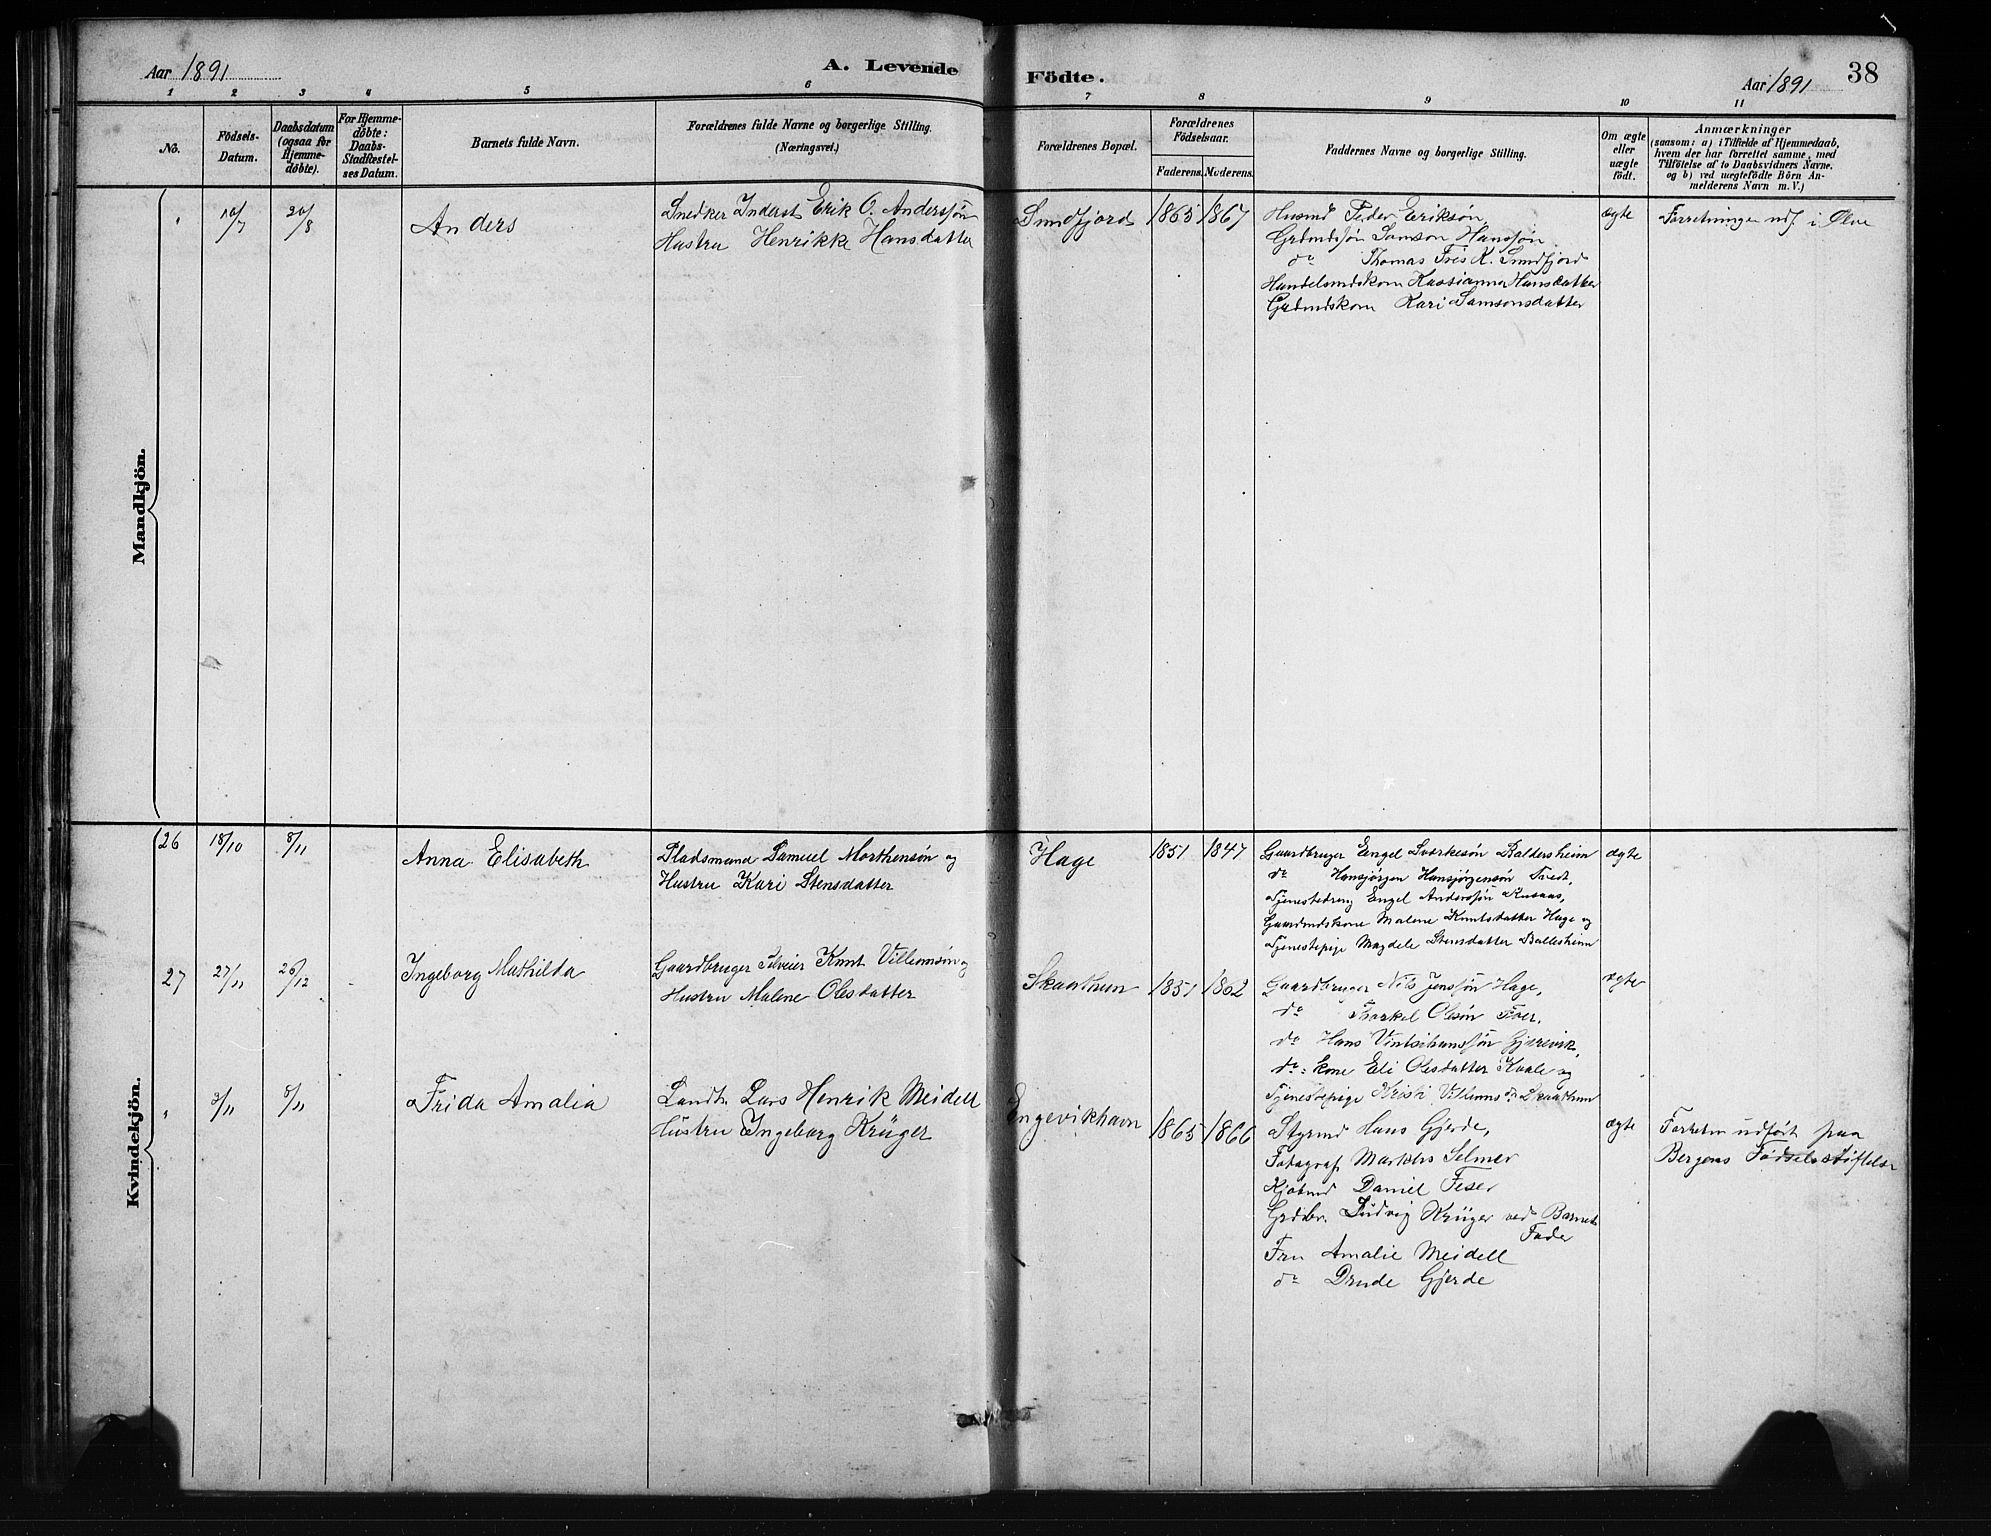 Aar 1891
A. Levende
Födte.
Aar 1891
38
1 2 3 4 5 6 7 8 9 10 11
No.
Födsels-
Datum.
Daabsdatum
(ogsaa for
Hjemme-
döbte).
For Hjemme-
döbte:
Daabs-
Stadfæstel-
ses Datum.
Barnets fulde Navn.
Forældrenes fulde Navne og borgerlige Stilling.
(Næringsvei.)
Forældrenes Bopæl.
Forældrenes
Födselsaar.
Faderens.
Moderens.
Faddernes Navne og borgerlige Stilling.
Om ægte
eller
uægte
födt.
Anmærkninger
(saasom: a) i Tilfælde af Hjemmedaab,
hvem der har forrettet samme, med
Tilföielse af to Daabsvidners Navne,
og b) ved uægtefödte Börn An-
melderens Navn m. V.)
Mandkjön.
"
10/7
20/8
Anders
Snedker Inderst Erik O. Anderssøn
Hustru Henrikke Hansdatter
Sundfjord
1865
1867
Husmd Peder Eriksøn,
Grdmdssøn Samson Hanssøn
do Thomas Friis K. Sundfjord
Handelsmdskone Kassianna Hansdatter
Grdmdskone Kari Samsonsdatter
ægte
Forretningen udf. i Ølve
Kvindekjön.
26
18/10
8/11
Anna Elisabeth
Pladsmand Samuel Morthensøn og
Hustru Kari Stensdatter
Hage
1851
1847
Gaardbruger Engel Sverkesøn Baldersheim
do Hansjørgen Hansjørgensøn Tvedt,
Tjenestedreng Engel Anderssøn Rusaas,
Gaardmdskone Malene Knutsdatter Hage og
Tjenestepige Magdele Stensdatter Ballesheim
ægte
27
27/11
26/12
Ingeborg Mathilda
Gaardbruger Knut Villumsøn og
Hustru Malene Olesdatter
Skaathun
1851
1862
Gaardbruger Nils Jenssøn Hage,
do Thorkel Olesøn Foer,
do Hans Gjerevik,
do: kone Eli Olesdatter Kvale og
Tjenestepige Kristi Villumsdr Skaathun
ægte
"
3/11
8/11
Frida Amalia
Landh. Lars Henrik Meidell
Hustru Ingeborg Krüger
Engevikhavn
1865
1866
Styrmd Hans Gjerde,
Fotograf Markus Selmer
Kjøbmd Daniel Feser
Grdbr. Ludvig Krüger ved Barnets
Fader
Fru Amalie Meidell
do Drude Gjerde
ægte
Forretn udført paa
Bergens Fødselsstiftelse